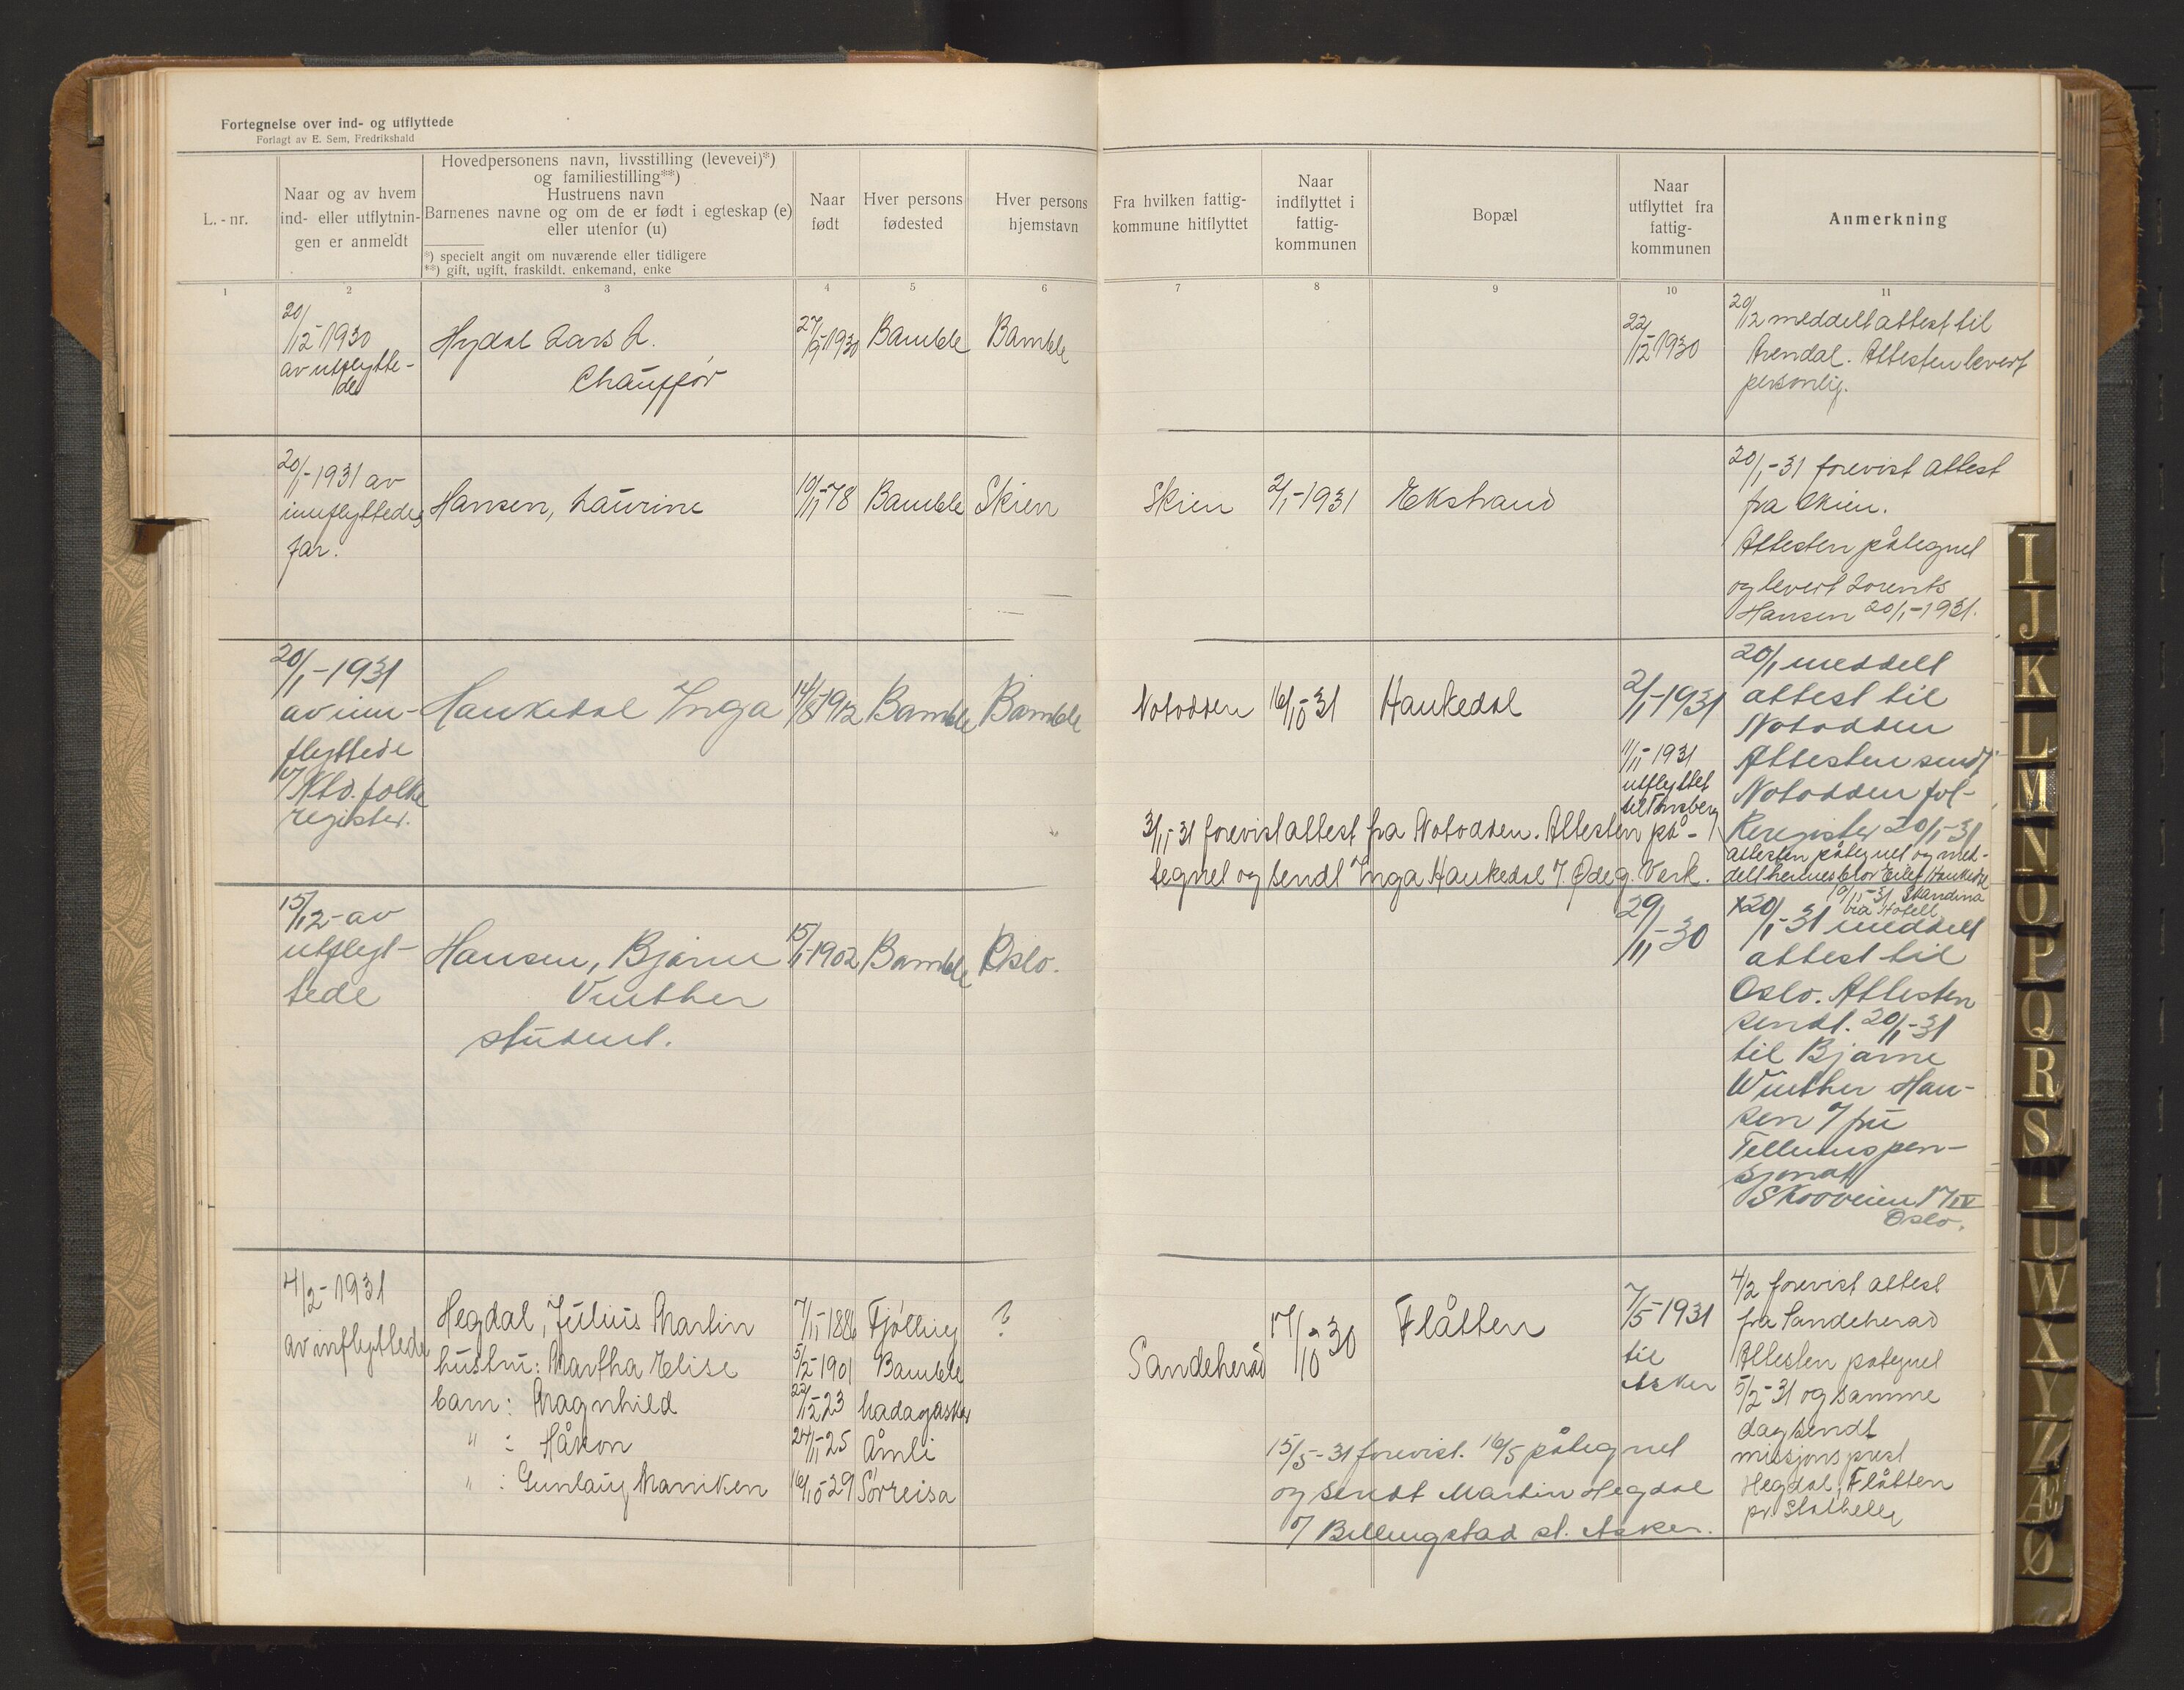 Fortegnelse over ind- og utflyttede
Forlagt av E. Sem, Fredrikshald
L.-nr.
Naar og av hvem
ind- eller utflytnin-
gen er anmeldt
Hovedpersonens navn, livsstilling (levevei)*)
og familiestilling**)
Hustruens navn
Barnenes navne og om de er født i egteskap (e)
eller utenfor (u)
*) specielt angit om nuværende eller tidligere
**) gift, ugift, fraskildt, enkemand, enke
Naar
født
Hver persons
fødested
Hver persons
hjemstavn
Fra hvilken fattig-
kommune hitflyttet
Naar
indflyttet i
fattig-
kommunen
Bopæl
Naar
utflyttet fra
fattig-
kommunen
Anmerkning
1 2 3 4 5 6 7 8 9 10 11
20/12-1930
av utflytte-
de
Hydal Lars L.
Chauffør
1930
Bamble
Bamble
22/12-1930
20/12 meddelt attest til
Arendal. Attesten levert
personlig.
20/1-1931 av
innflyttedes
far.
Hansen, Laurine
10/11-78
Bamble
Skien
Skien
2/1-1931
Ekstrand
20/1-31 forevist attest
fra Skien.
Attesten påtegnet
og levert Lorents
Hansen 20/1-1931.
20/1-1931
av inn-
flyttede
v/ Ntd. folke
register.
Haukedal Inga
14/8-1912
Bamble
Bamble
Notodden
16/10-31
Haukedal
2/1-1931
11/11-1931
utflyttet
til Tønsberg
20/1 meddelt
attest til
Notodden
Attesten sendt
Notodden fol-
keregister 20/1-31
3/11-31 forevist attest fra Notodden. Attesten på-
tegnet og sendt Inga Haukedal 7. Ødeg. Verk.
attesten påtegnet og med-
delt hennes bror Eilef Haukedal
Skandina
via Hotell
15/12-av
utflyt-
tede
Hansen, Bjarne
Vinther
student.
15/1-1902
Bamble
Oslo.
29/11-30
x20/1-31 meddelt
attest til
Oslo. Attesten
sendt. 20/1-31
til Bjarne
Winther Han-
sen v/ fru
Tellmans pen-
sjonat
Skovveien 17 IV
Oslo.
4/2-1931
av inflyttede
Hegdal, Julius Martin
7/11-1886
Tjølling
?
hustru: Martha Elise
5/2-1901
Bamble
barn: Magnhild
22/12-23
Madagaskar
" : Håkon
24/11-25
Åmli
" : Gunlaug Marriken
16/10-29
Sørreisa
Sandeherad
17/10 30
Flåtten
7/5-1931
til
Asker
4/2 forevist attest
fra Sandeherad
Attesten påtegnet
5/2-31 og samme
dag sendt
missjonsprest
Hegdal, Flåtten
pr. Stathelle
15/5-31 forevist. 16/5 påtegnet
og sendt Martin Hegdal
v/ Billingstad st. Asker.
I
J
K
L
M
N
O
P
Q
R
S
T
U
W
X
Y
Z
Æ
Ø